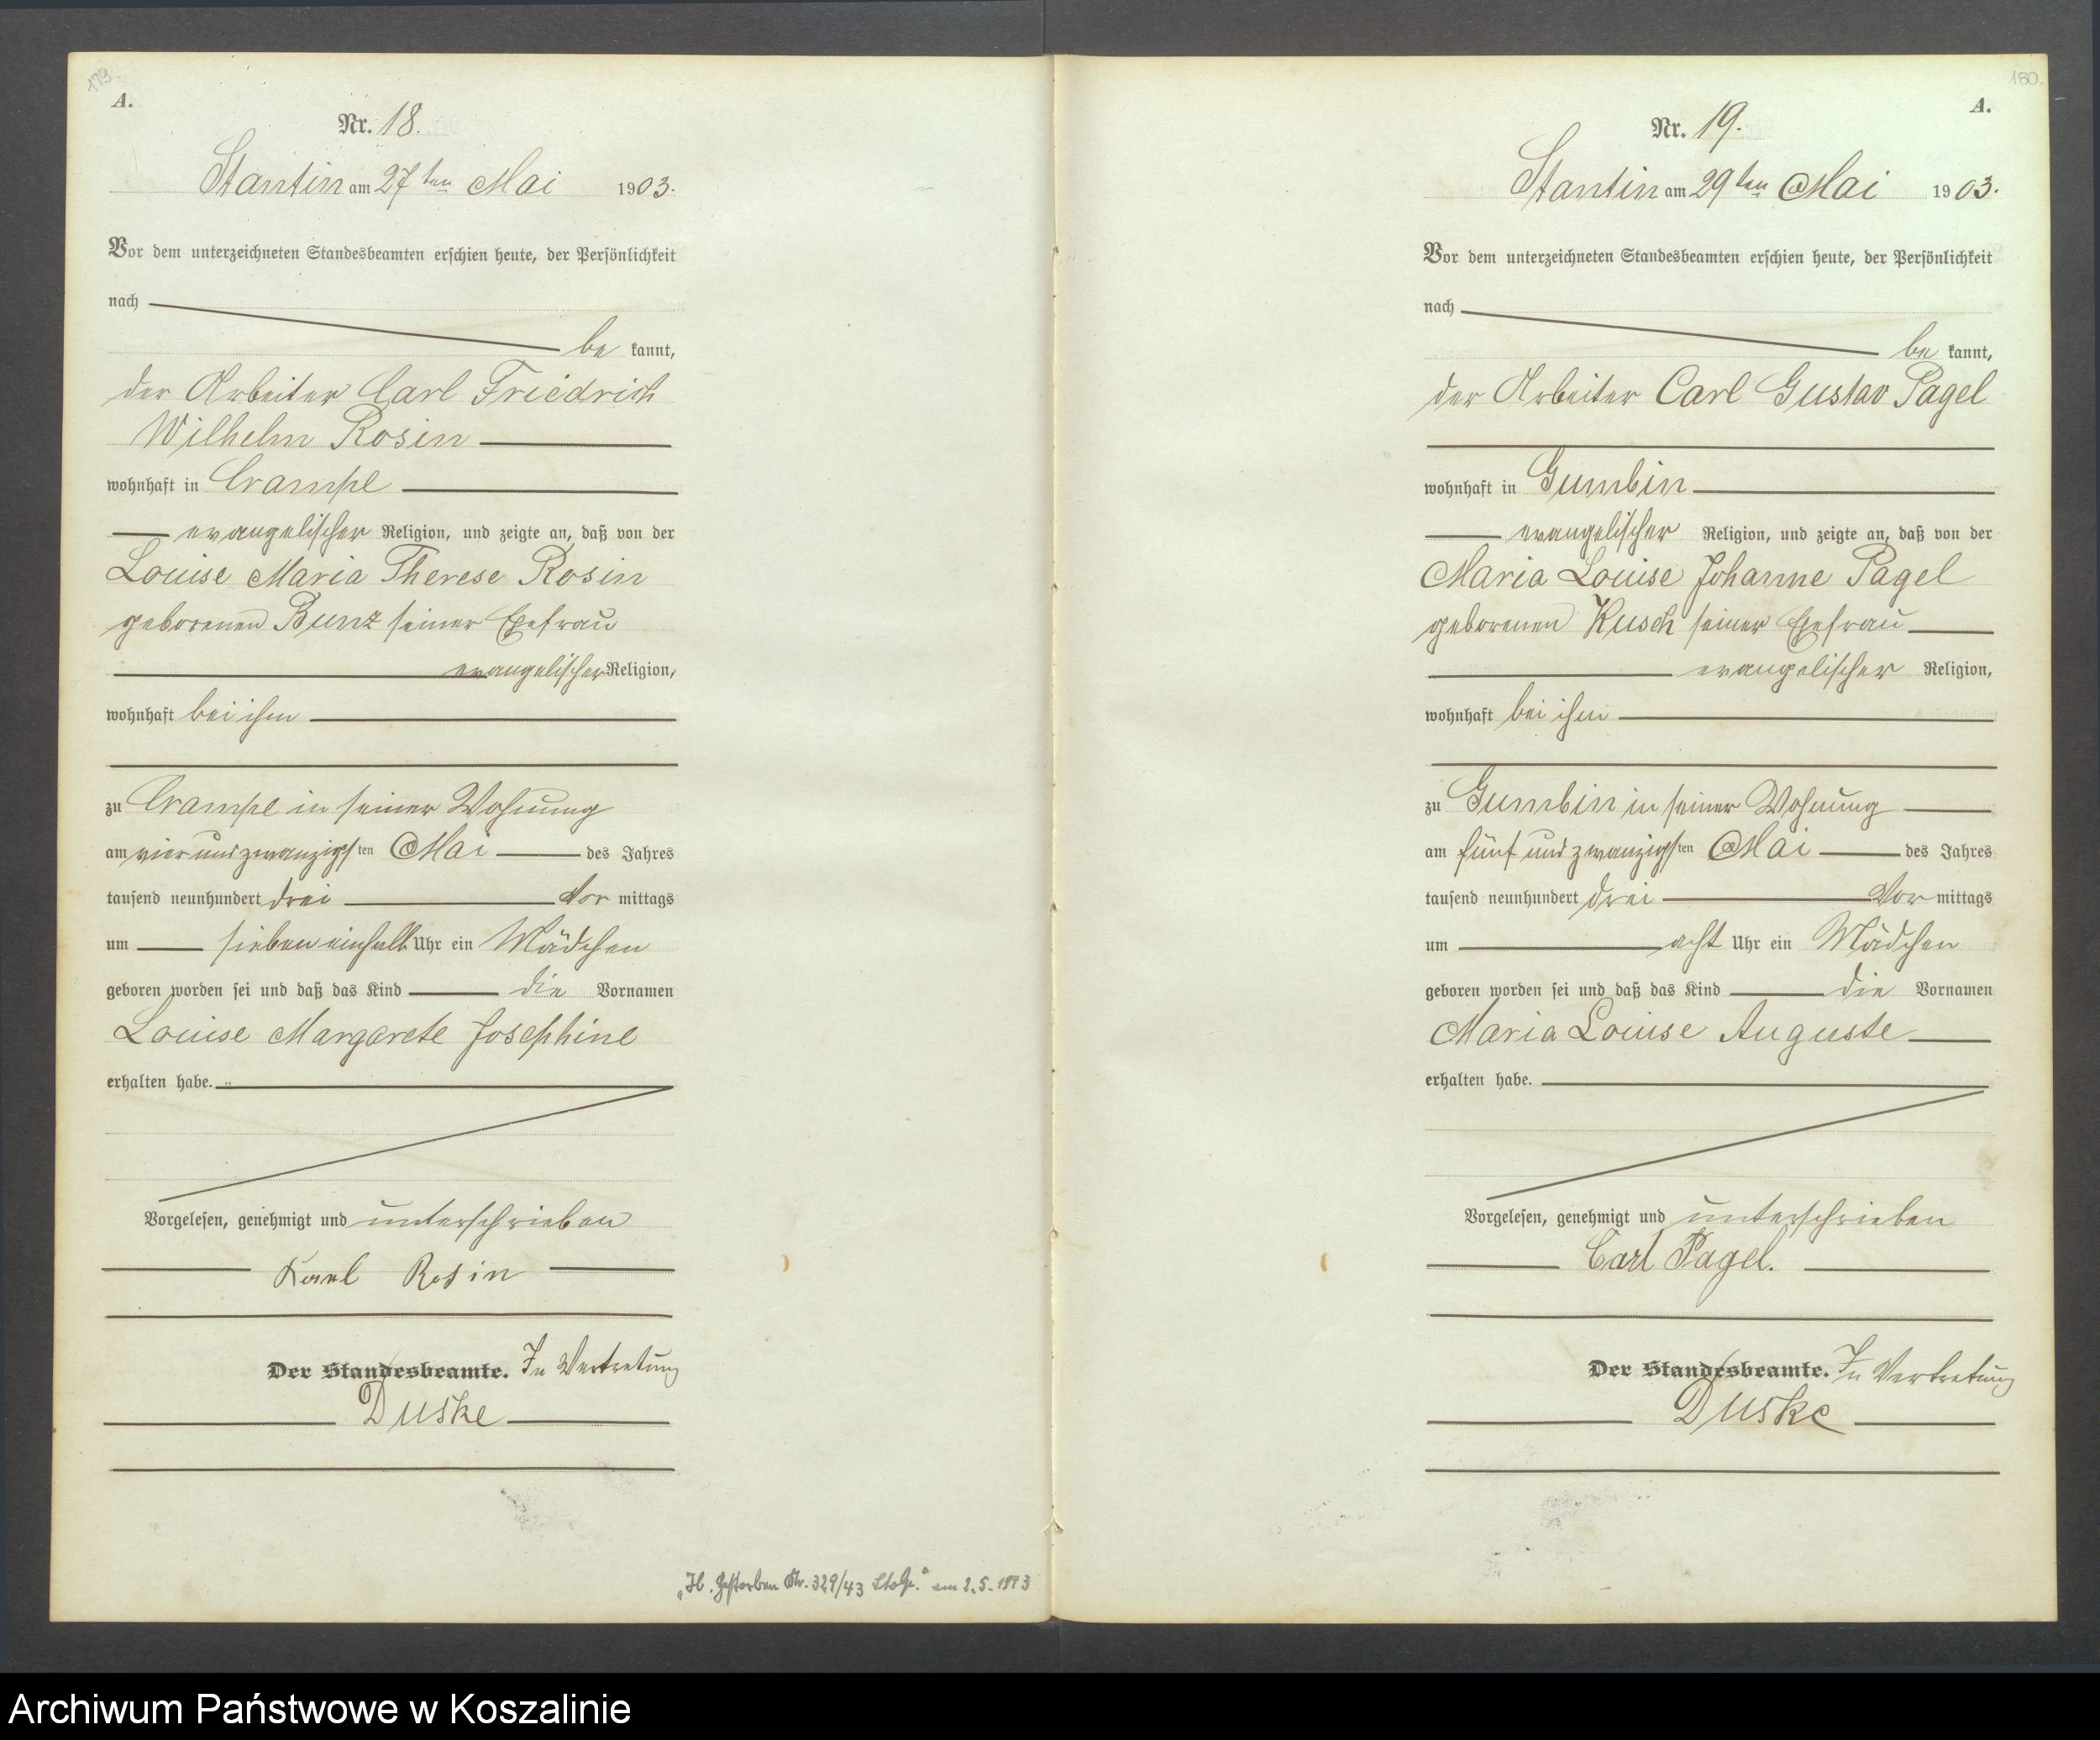 179.
A.
Nr. 18.
Stantin am 27ten Mai 1903.
Vor dem unterzeichneten Standesbeamten erschien heute, der Persönlichkeit
nach
be kannt,
der Arbeiter Carl Friedrich
Wilhelm Rosin
wohnhaft in Crampe
evangelischer Religion, und zeigte an, daß von der
Louise Maria Therese Rosin
geborenen Bunz seiner Ehefrau
evangelischer Religion,
wohnhaft bei ihm
zu Crampe in seiner Wohnung
am vierundzwanzigsten Mai des Jahres
tausend neunhundert drei Vor mittags
um sieben einhalb Uhr ein Mädchen
geboren worden sei und daß das Kind die Vornamen
Louise Margarete Josephine
erhalten habe.
Vorgelesen, genehmigt und unterschrieben
Karl Rosin
Der Standesbeamte. In Vertretung
Duske
Gestorben Nr. 329/43 am 2.5.1943
180.
A.
Nr. 19.
Stantin am 29ten Mai 1903.
Vor dem unterzeichneten Standesbeamten erschien heute, der Persönlichkeit
nach
be kannt,
der Arbeiter Carl Gustav Pagel
wohnhaft in Gumbin
evangelischer Religion, und zeigte an, daß von der
Maria Louise Johanne Pagel
geborenen Kusch seiner Ehefrau
evangelischer Religion,
wohnhaft bei ihm
zu Gumbin in seiner Wohnung
am fünfundzwanzigsten Mai des Jahres
tausend neunhundert drei Vor mittags
um acht Uhr ein Mädchen
geboren worden sei und daß das Kind die Vornamen
Maria Louise Auguste
erhalten habe.
Vorgelesen, genehmigt und unterschrieben
Carl Pagel.
Der Standesbeamte. In Vertretung
Duske
Archiwum Państwowe w Koszalinie